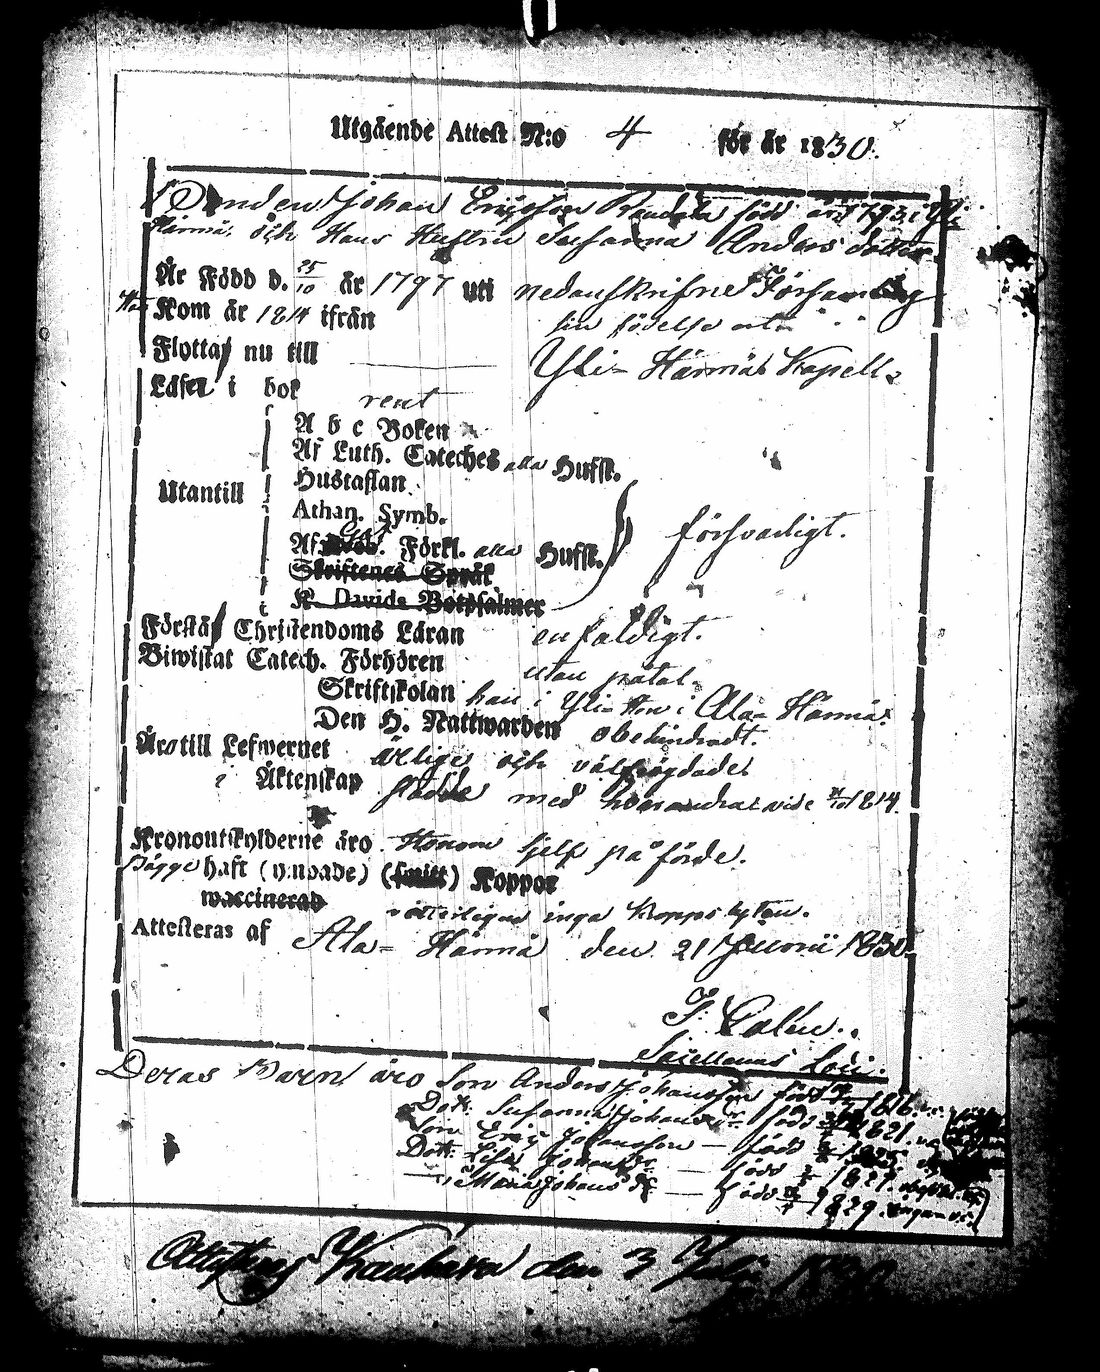 Utgående Attest N:o 4 för år 1830.
Bonden Johan Ericsson Kandala född år 1793 i Yli
Härmä, och Hans Hustru Susanna Anders dotter
Är Född d. 25/10 år 1797 uti nedanskrifne Församling
Kom år 1814 ifrån sin födelse ort
Flytta nu till Yli- Härmä Kapell
Läser i bok rent
A b c Boken
Af Luth. Cateches alla Hufst.
Hustaflan
Utantill
Athan. Symb.
Af Förkl. alla Hufst. försvarligt.
Skriftenes Språk
K. Davids Botpsalmer
Förstå Christendoms Läran enfaldigt.
Biwistat Catech. Förhören utan
Skriftskolan han i Yli- Hon i Ala- Härmä.
Den H. Nattwarden obehindradt.
Äro till Lefwernet ärlige och välfrägdade
i Äktenskap med hvarandra 1814.
Kronoutskylderne äro Honom sjelf påförde.
Bägge haft (ympade) (smitt) Koppor
waccinerad inga Kopps
Attesteras af Ala- Härmä den 21 Junii 1830.
Sacellanus Loci.
Deras Barn äro Son Anders Johansson född 1816.
Dott. Susanna Johans dr född 1821.
Son Eric Johansson — född
Dott. Lisa Johans dr — född 1827.
— Maria Johans dr — född 1829.
Kauhava den 3 Juli 1830